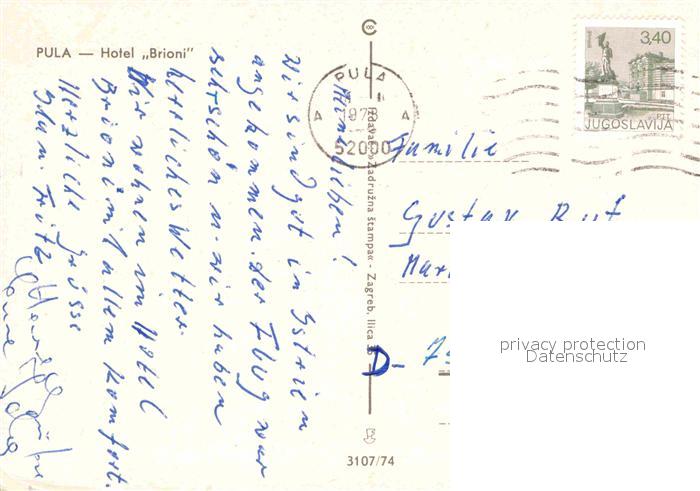 PULA — Hotel „Brioni"
Ihr Lieben!
Wir sind gut in Istrien
angekommen. Der Flug war
sehr schön u. wir haben
herrliches Wetter.
Wir wohnen im Hotel
Brioni mit allem Komfort.
Herzliche Grüsse
Fritz
PULA
A A
52000
Izdavač: »Zadružna štampa« - Zagreb, Ilica
3,40
PTT
JUGOSLAVIJA
Familie
Gustav
D-
privacy protection
Datenschutz
3107/74